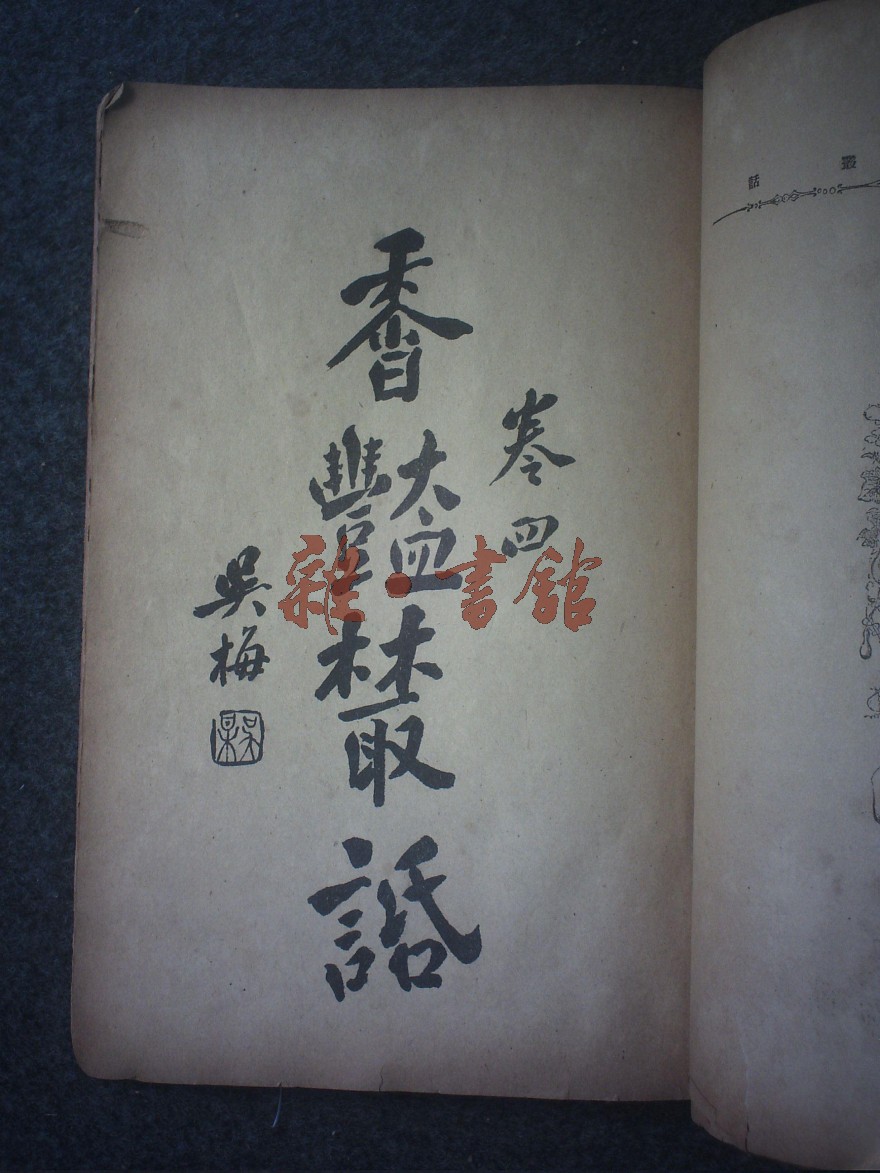 叢話
卷四
香豔叢話
吳梅
雜·書館